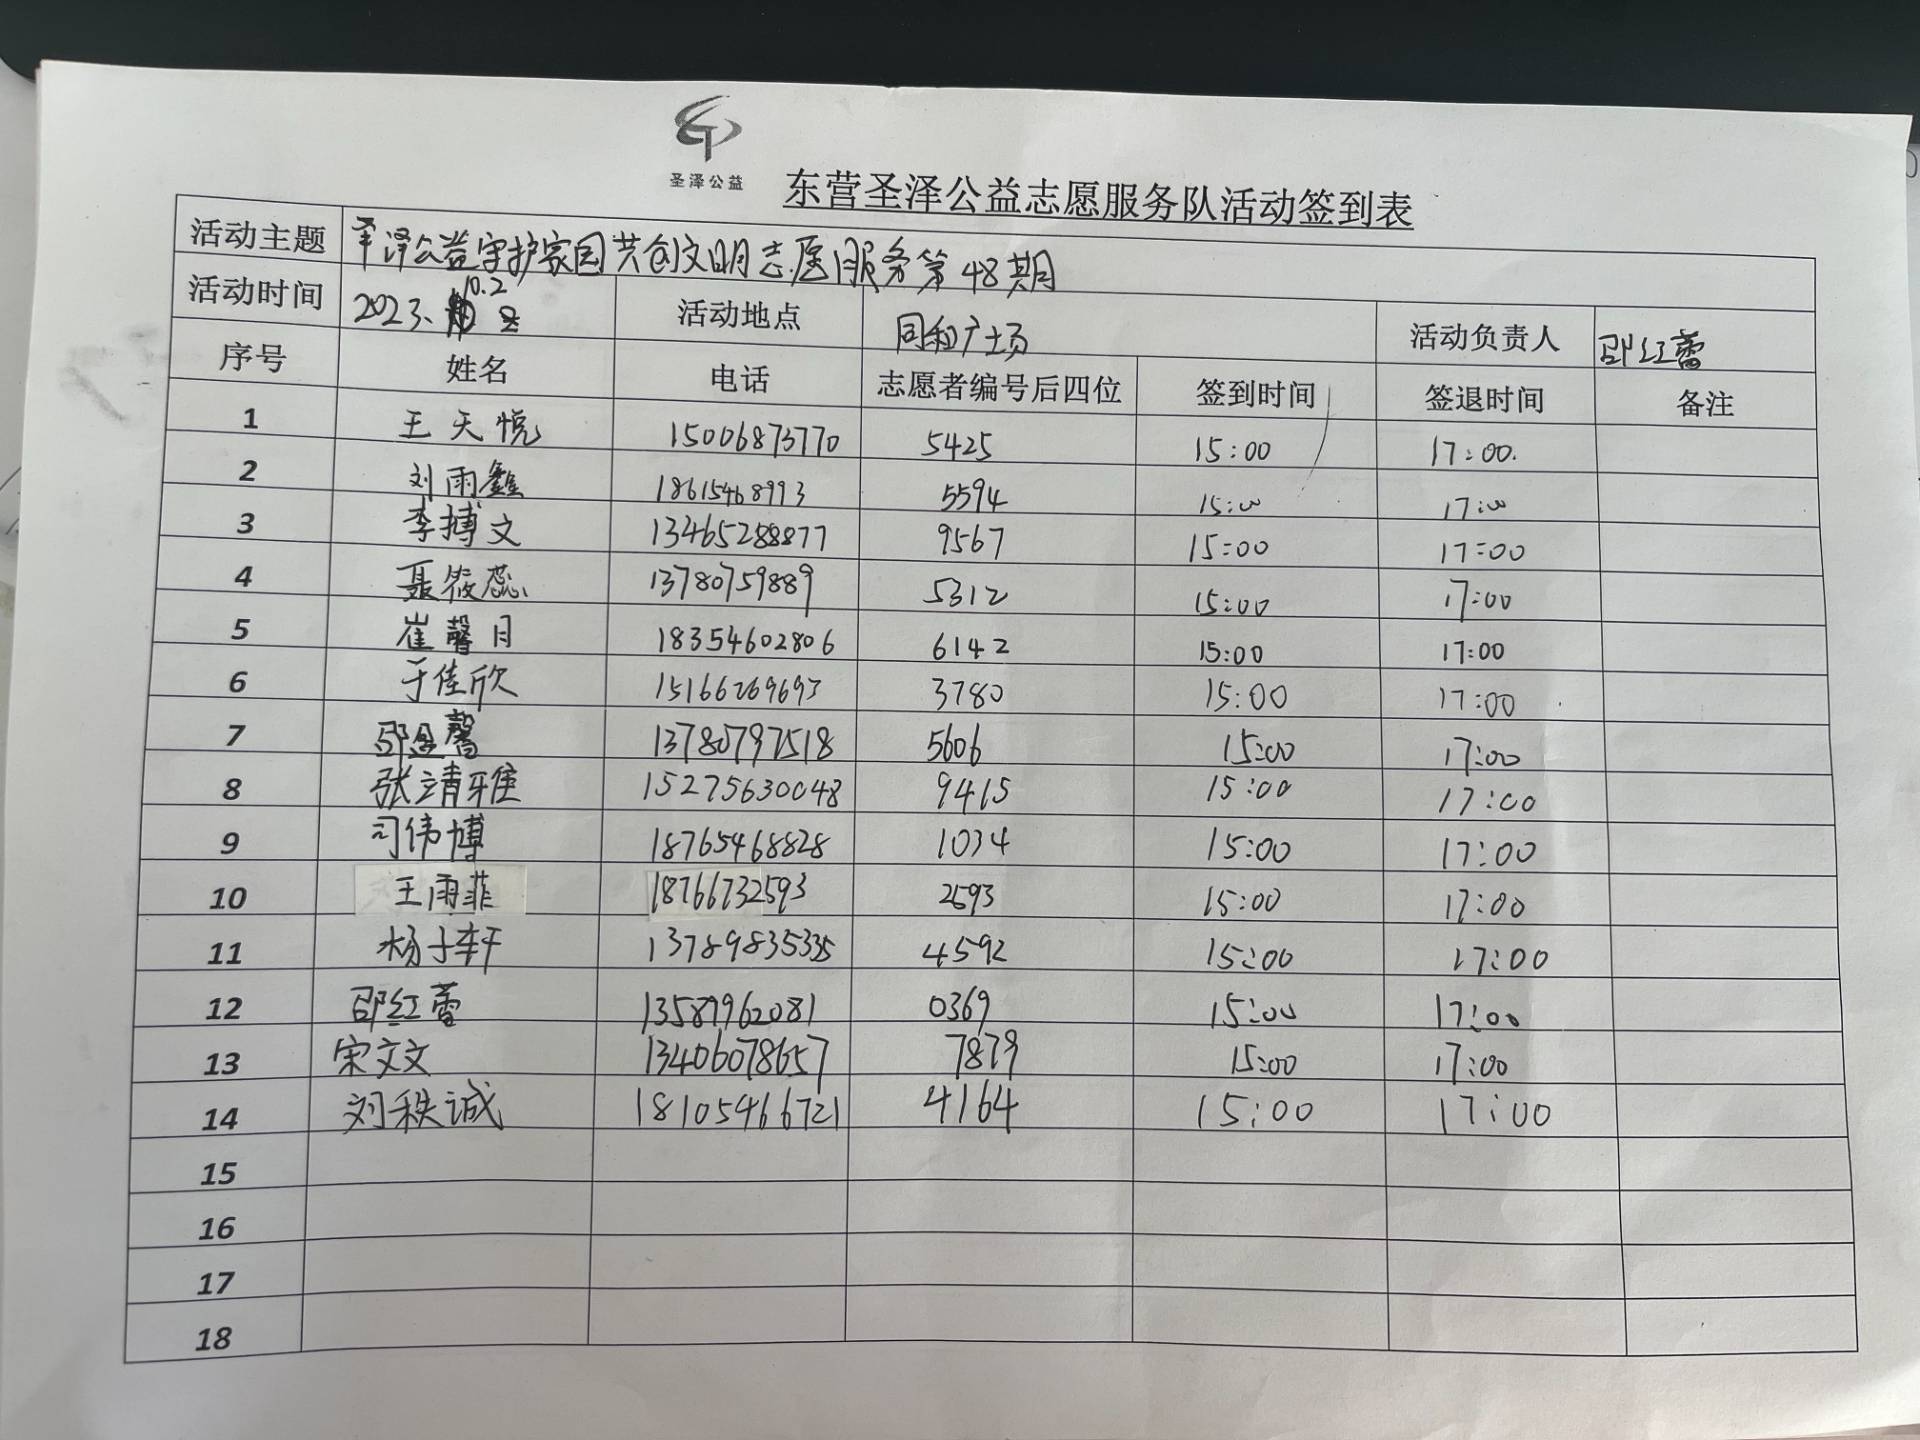 圣泽公益
东营圣泽公益志愿服务队活动签到表
活动主题 圣泽公益守护家园共创文明志愿服务第48期
活动时间 2023.10.2 活动地点 同和广场 活动负责人 邵红蕾
序号 姓名 电话 志愿者编号后四位 签到时间 签退时间 备注
1 王天悦 15006873770 5425 15:00 17:00.
2 刘雨鑫 18615468993 5594 15:00 17:00
3 李搏文 13465288877 9567 15:00 17:00
4 聂筱蕊 13780759889 5312 15:00 17:00
5 崔馨月 18354602806 6142 15:00 17:00
6 于佳欣 15166269693 3780 15:00 17:00
7 邵显馨 13780797518 5606 15:00 17:00
8 张靖雅 15275630048 9415 15:00 17:00
9 司伟博 18765468828 1034 15:00 17:00
10 王雨菲 18766732593 2593 15:00 17:00
11 杨子轩 13789835335 4592 15:00 17:00
12 邵红蕾 13589962081 0369 15:00 17:00
13 宋文文 13406078657 7879 15:00 17:00
14 刘秩诚 18105466721 4164 15:00 17:00
15
16
17
18